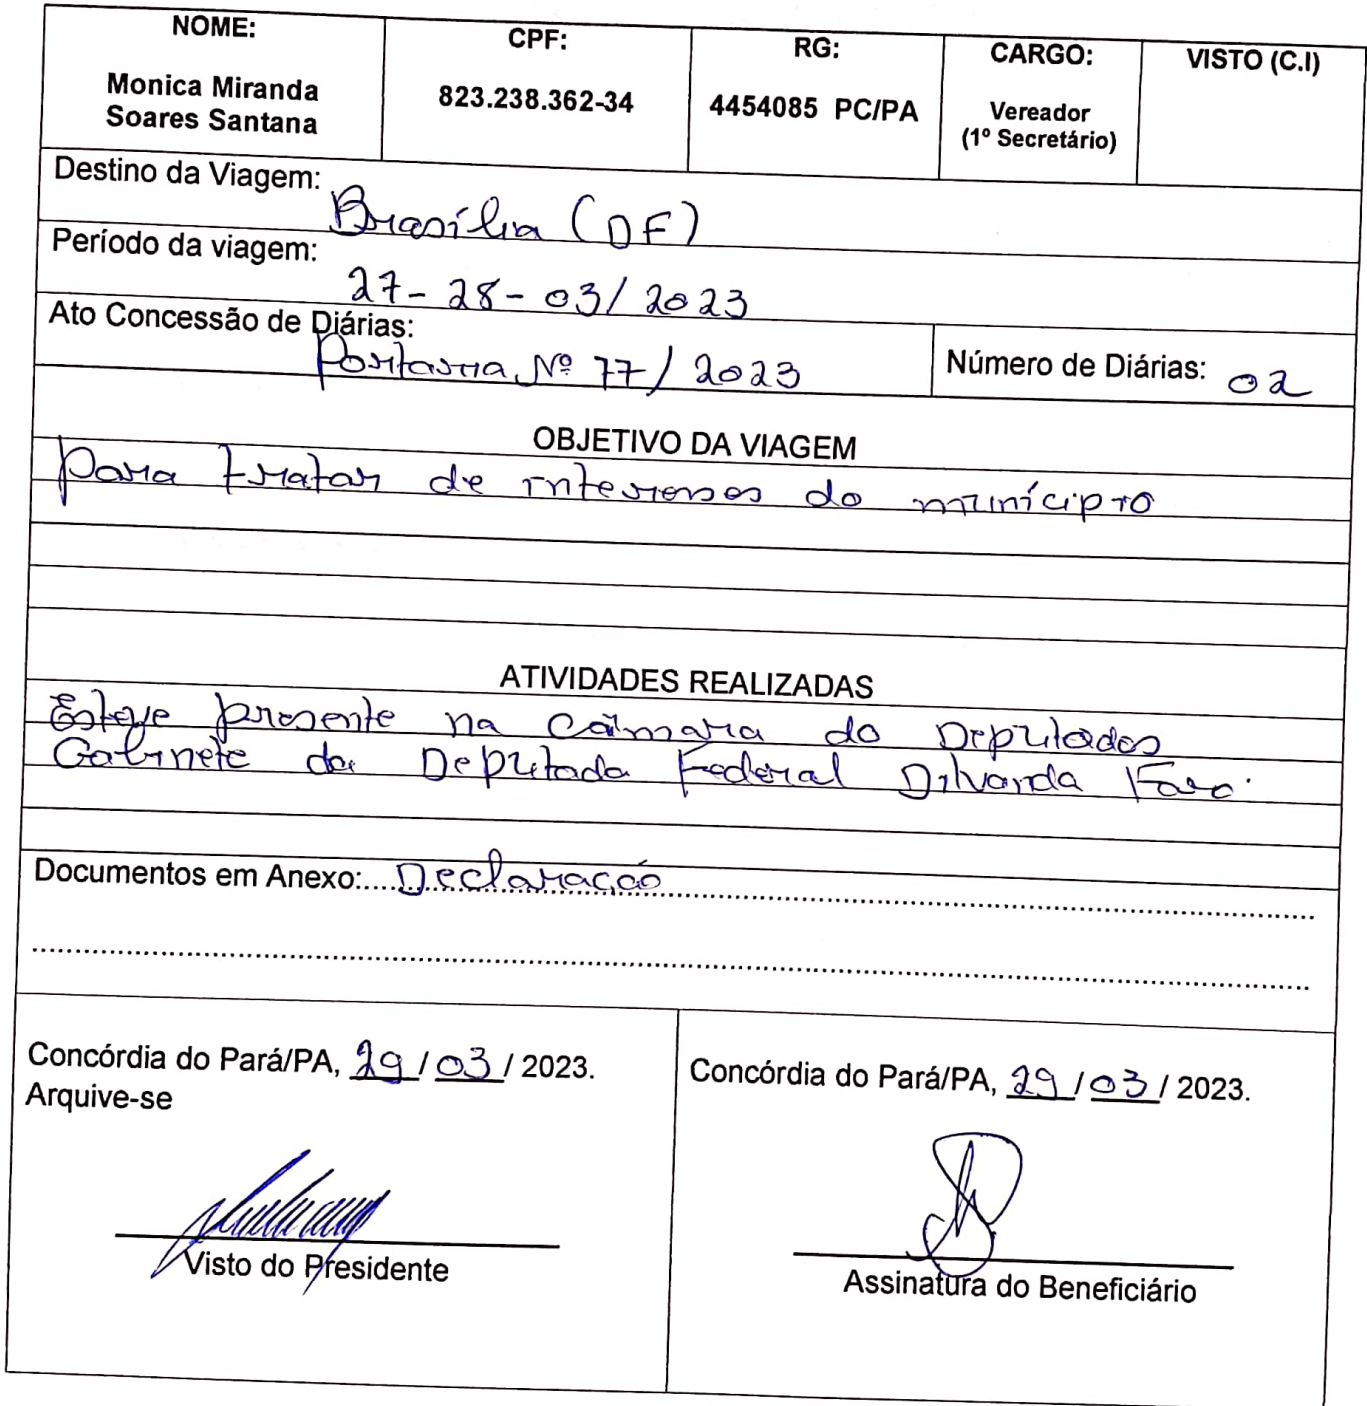 NOME:
CPF:
RG:
CARGO:
VISTO (C.I)
Monica Miranda
Soares Santana
823.238.362-34
4454085 PC/PA
Vereador
(1º Secretário)
Destino da Viagem:
Brasília (DF)
Período da viagem:
27-28-03/2023
Ato Concessão de Diárias:
Portaria Nº 77/2023
Número de Diárias: 02
OBJETIVO DA VIAGEM
Para tratar de interesses do município
ATIVIDADES REALIZADAS
Esteve presente na Câmara do Deputados
Gabinete da Deputada Federal Dilvanda Faro.
Documentos em Anexo: Declaração
Concórdia do Pará/PA, 29/03/2023.
Arquive-se
Visto do Presidente
Concórdia do Pará/PA, 29/03/2023.
Assinatura do Beneficiário